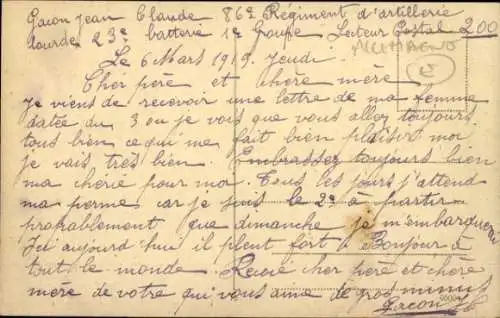 Gacon Jean Claude 86e Régiment d'artillerie
lourde 23e batterie 1e groupe Secteur Postal 200
ALLEMAGNE
Le 6 Mars 1919. Jeudi
Cher père et chère mère
Je viens de recevoir une lettre de ma femme
datée du 3 ou je vois que vous allez toujours
tous bien ce qui me fait bien plaisir moi
je vais très bien. Embrassez toujours bien
ma chérie pour moi. Tous les jours j'attend
ma perme car je suis le 2e a partir
probablement que dimanche je m'embarquerai
Ici aujourd'hui il pleut fort. Bonjour à
tout le monde. Recevé cher père et chère
mère de votre qui vous aime de gros mimis
Gacon JC